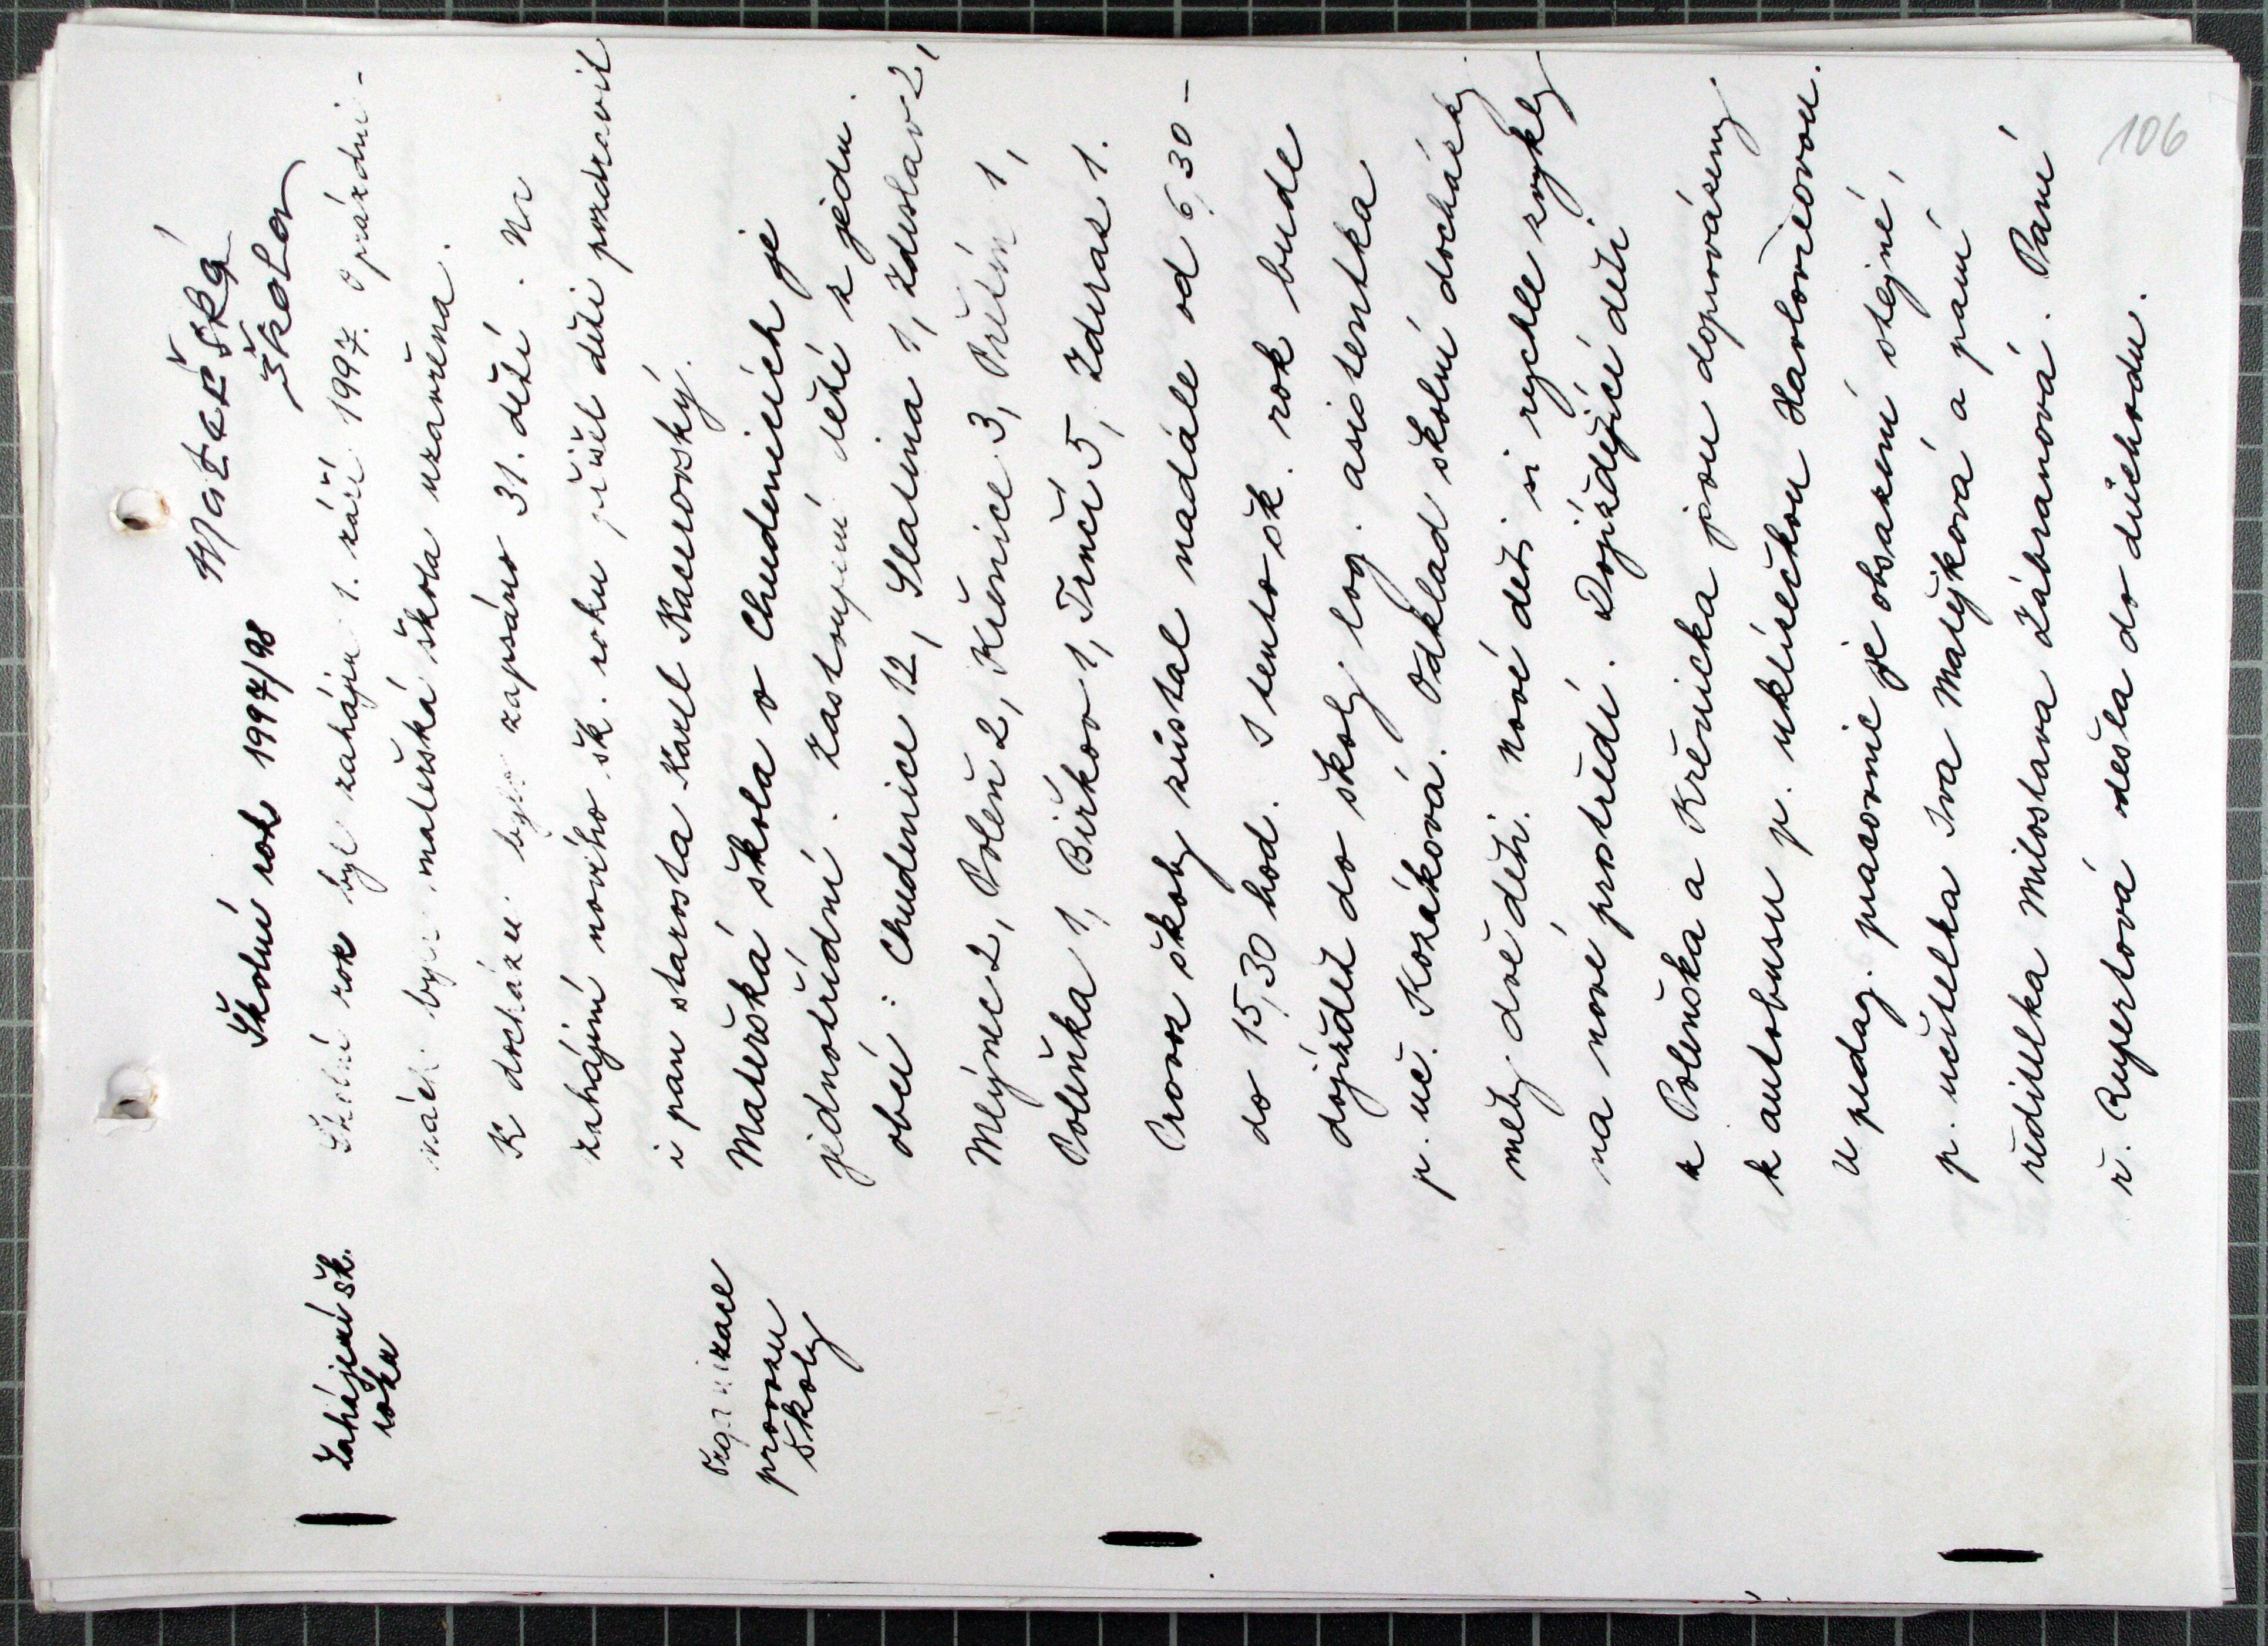 Mateřská
škola
Školní rok 1997/98
Zahájení šk.
roku
Školní rok byl zahájen 1. září 1997. O prázdni-
nách byla mateřská škola uzavřena.
K docházce bylo zapsáno 31. dětí. Na
zahájení nového šk. roku přišel děti pozdravit
i pan starosta Karel Kacerovský.
Organizace
provozu
školy
Mateřská škola v Chudenicích je
jednotřídní. Zastoupení dětí z jedn.
obcí: Chudenice 12, Slatina 1, Zdeslav 2,
Mlýnec 2, Poleň 2, Křenice 3, Přetín 1,
Poleňka 1, Bířkov 1, Trnčí 5, Žduras 1.
Provoz školy zůstal nadále od 6,30 -
do 15,30 hod. I tento šk. rok bude
dojíždět do školy log. asistentka
p. uč. Kozáková. Odklad školní docházky
měly dvě děti. Nové děti si rychle zvykly
na nové prostředí. Dojíždějící děti
z Poleňska a Křenicka jsou doprovázeny
k autobusu p. uklízečkou Havlovicovou.
U pedag. pracovnic je obsazení stejné,
p. učitelka Iva Matějková a paní
ředitelka Miloslava Zábranová. Paní
ř. Rupertová odešla do důchodu.
106